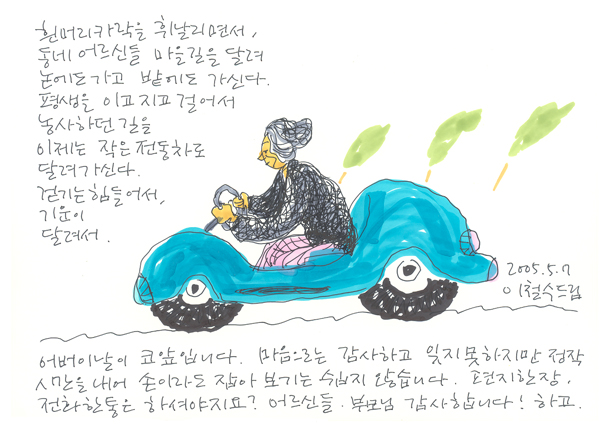 흰머리카락을 휘날리면서,
동네 어르신들 마을길을 달려
논에도 가고 밭에도 가신다.
평생을 이고 지고 걸어서
농사하던 길을
이제는 작은 전동차로
달려가신다.
걷기는 힘들어서,
기운이
달려서.
2005.5.7
이철수드림
어버이날이 코앞입니다. 마음으로는 감사하고 잊지못하지만 정작
시간을 내어 손이라도 잡아 보기는 쉽지 않습니다. 편지한장,
전화한통은 하셔야지요? 어르신들. 부모님 감사합니다! 하고.